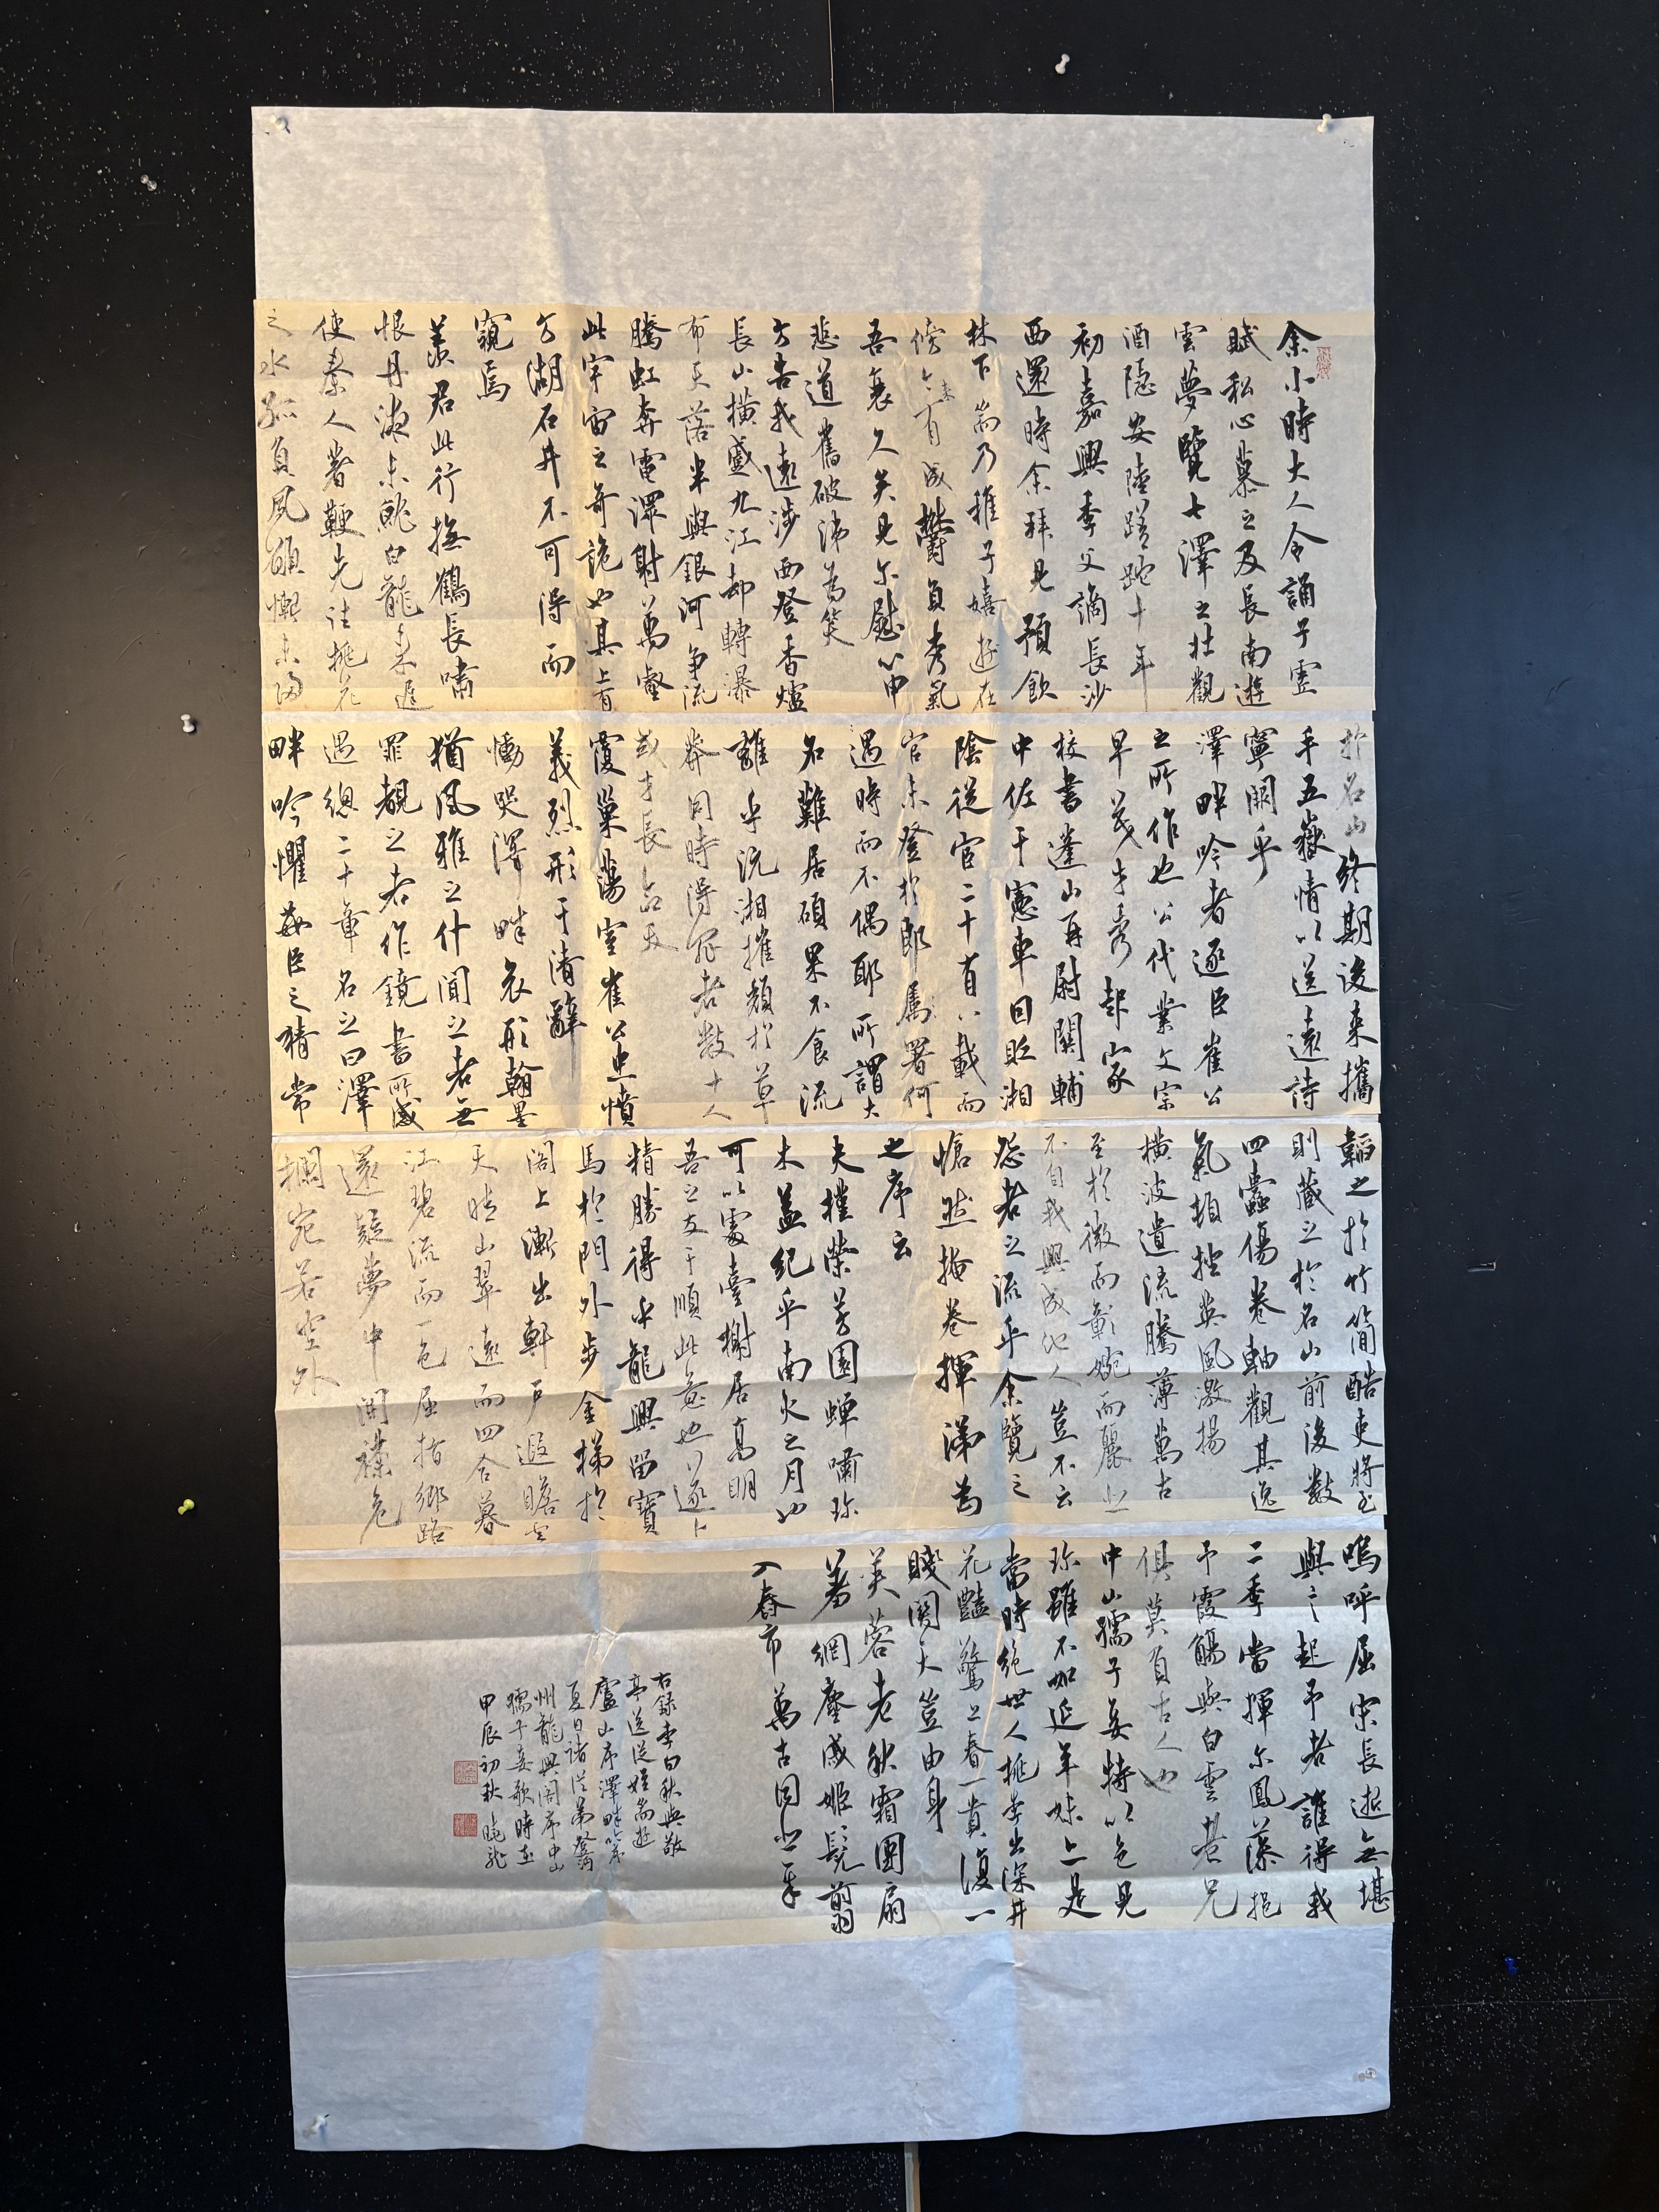 余小時大人令誦子虛
賦私心慕之及長南遊
雲夢覽七澤之壯觀
酒隱安陸蹉跎十年
初嘉興季父謫長沙
西還時余拜見預飲
林下耑乃稚子嬉遊在
傍今來有成鬱負秀氣
吾衰久矣見尔慰心申
悲道舊破涕為笑
方告我遠涉西登香爐
長山橫蹙九江却轉瀑
布天落半與銀河爭流
騰虹奔電潨射萬壑
此宇宙之奇詭也其上有
方湖石井不可得而
窺焉
羨君此行撫鶴長嘯
恨丹液未就白龍來遲
使秦人著鞭先往桃花
之水孤負夙願慚未歸
於名山終期後來攜
手五嶽情以送遠詩
寧闕乎
澤畔吟者逐臣崔公
之所作也公代業文宗
早茂才秀起家
校書蓬山再尉關輔
中佐于憲車因貶湘
陰從宦二十有八載而
官未登於郎屬署何
遇時而不偶耶所謂大
名難居碩果不食流
離乎沅湘摧頹於草
莽同時得罪者數十人
或才長命夭
覆巢蕩室崔公忠憤
義烈形于清辭
慟哭澤畔哀形翰墨
猶風雅之什聞之者無
罪覩之者作鏡書所感
遇總二十章名之曰澤
畔吟懼姦臣之猜常
韜之於竹簡酷吏將至
則藏之於名山前後數
四蠹傷卷軸觀其逸
氣頓挫英風激揚
橫波遺流騰薄萬古
至於微而彰婉而麗悲
不自我興成他人豈不云
怨者之流乎余覽之
愴然掩卷揮涕為
之序云
夫槿榮芳園蟬嘯珍
木蓋紀乎南火之月也
可以處臺榭居高明
吾之友于順此意也遂卜
精勝得乎龍興留寶
馬於門外步金梯於
閣上漸出軒戶遐瞻雲
天晴山翠遠而四合暮
江碧流而一色屈指鄉路
還疑夢中開襟危
欄宛若空外
嗚呼屈宋長逝無堪
與言起予者誰得我
二季當揮尔鳳藻挹
予霞觴與白雲老兄
俱莫負古人也
中山孺子妾特以色見
珍雖不如延年妹亦是
當時絕世人桃李出深井
花豔驚上春一貴復一
賤關天豈由身
芙蓉老秋霜團扇
羞網塵戚姬髡翦
入舂市萬古同悲辛
右錄李白秋於敬
亭送從姪耑遊
廬山序澤畔吟序
夏日諸從弟登灃
州龍興閣序中山
孺子妾歌時在
甲辰初秋曉龍